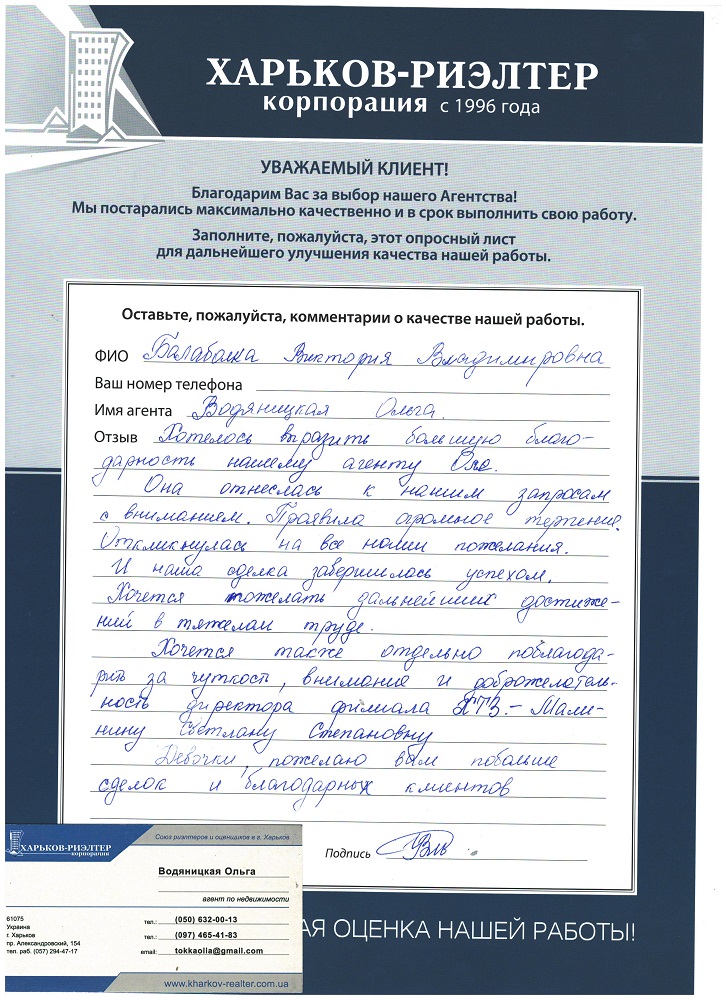 ХАРЬКОВ-РИЭЛТЕР
корпорация с 1996 года
УВАЖАЕМЫЙ КЛИЕНТ!
Благодарим Вас за выбор нашего Агентства!
Мы постарались максимально качественно и в срок выполнить свою работу.
Заполните, пожалуйста, этот опросный лист
для дальнейшего улучшения качества нашей работы.
Оставьте, пожалуйста, комментарии о качестве нашей работы.
ФИО Балабалка Виктория Владимировна
Ваш номер телефона
Имя агента Водяницкая Ольга.
Отзыв Хотелось выразить большую благо-
дарность нашему агенту Оле.
Она отнеслась к нашим запросам
с вниманием. Проявила огромное терпение.
Откликнулась на все наши пожелания.
И наша сделка завершилась успехом.
Хочется пожелать дальнейших достиже-
ний в тяжелом труде.
Хочется также отдельно поблагода-
рить за чуткость, внимание и доброжелатель-
ность директора филиала ХТЗ - Мали-
нину Светлану Степановну
Девочки, пожелаю вам побольше
сделок и благодарных клиентов
Подпись
АЯ ОЦЕНКА НАШЕЙ РАБОТЫ!
Союз риэлтеров и оценщиков в г. Харьков
ХАРЬКОВ-РИЭЛТЕР
корпорация
Водяницкая Ольга
агент по недвижимости
61075
Украина
г. Харьков
пр. Александровский, 154
тел. раб. (057) 294-47-17
тел.: (050) 632-00-13
тел.: (097) 465-41-83
email: tokkaolia@gmail.com
www.kharkov-realter.com.ua